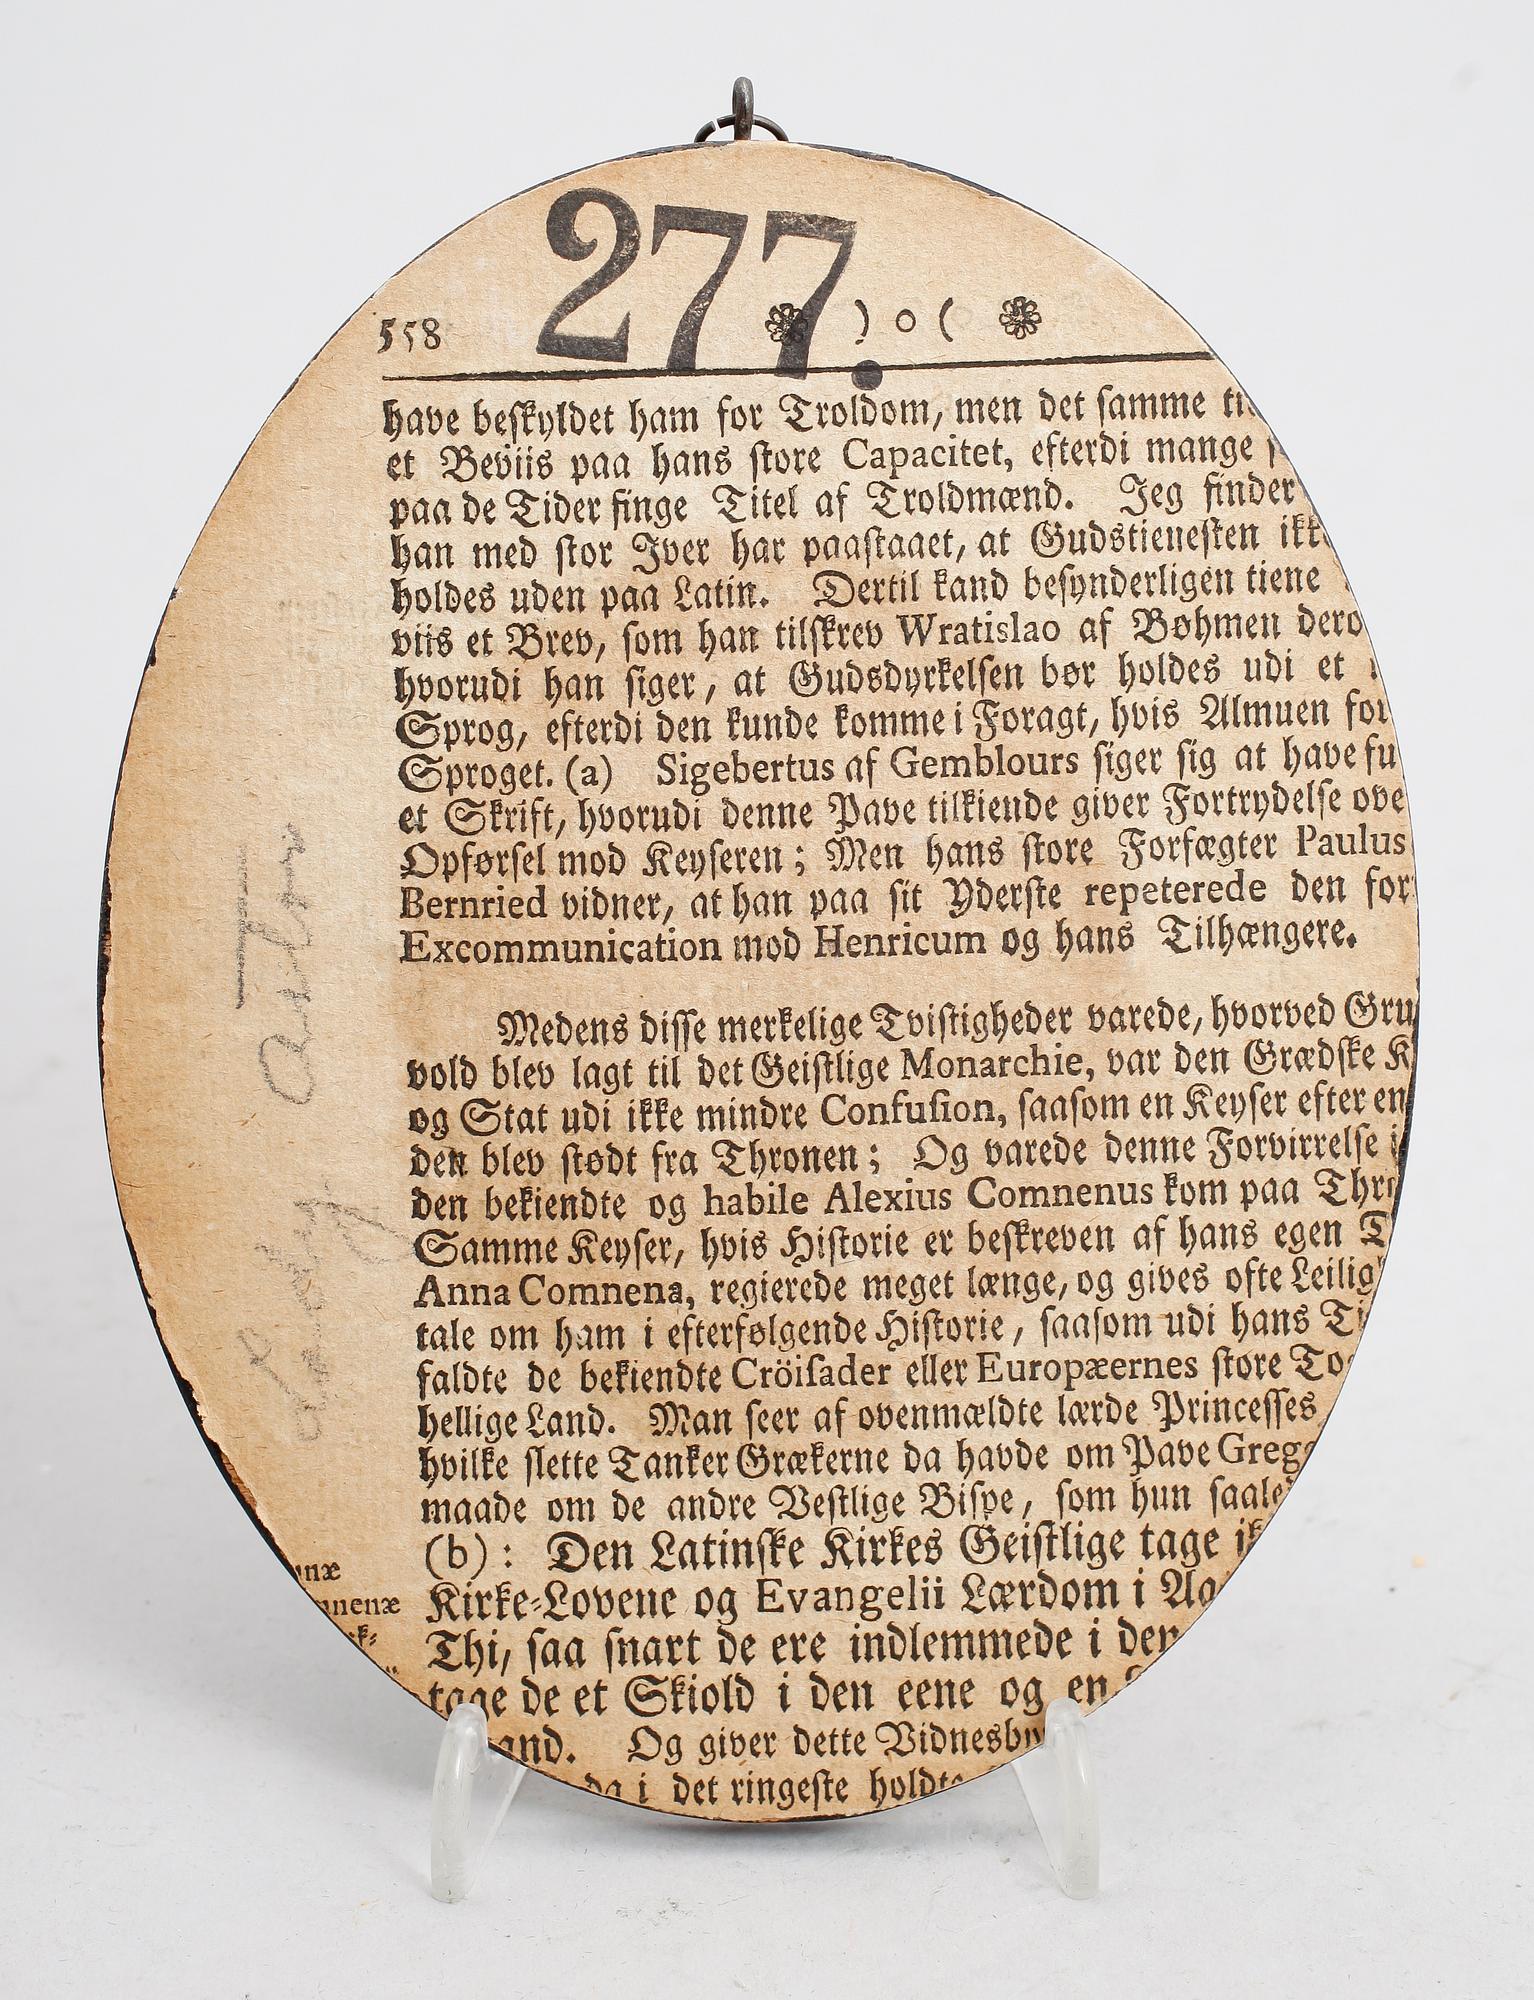 277.
558 ) o (
have beskyldet ham for Troldom, men det samme
et Beviis paa hans store Capacitet, efterdi mange
paa de Tider finge Titel af Troldmænd. Jeg finder
han med stor Iver har paastaaet, at Gudstienesten
holdes uden paa Latin. Dertil kand besynderligen tiene
viis et Brev, som han tilskrev Wratislao af Bøhmen
hvorudi han siger, at Gudsdyrkelsen bør holdes udi et
Sprog, efterdi den kunde komme i Foragt, hvis Almuen
Sproget. (a) Sigebertus af Gemblours siger sig at have
et Skrift, hvorudi denne Pave tilkiende giver Fortrydelse
Opførsel mod Keyseren; Men hans store Forfægter Paulus
Bernried vidner, at han paa sit Yderste repeterede den
Excommunication mod Henricum og hans Tilhængere.
Medens disse merkelige Tvistigheder varede, hvorved
vold blev lagt til det Geistlige Monarchie, var den Grædske
og Stat udi ikke mindre Confusion, saasom en Keyser efter en
den blev stødt fra Thronen; Og varede denne Forvirrelse
den bekiendte og habile Alexius Comnenus kom paa
Samme Keyser, hvis Historie er beskreven af hans egen
Anna Comnena, regierede meget længe, og gives ofte
tale om ham i efterfølgende Historie, saasom udi hans
faldte de bekiendte Cröisader eller Europæernes store
hellige Land. Man seer af ovenmældte lærde Princesses
hvilke slette Tanker Grækerne da havde om Pave
maade om de andre Vestlige Bispe, som hun
(b): Den Latinske Kirkes Geistlige tage
Kirke-Lovene og Evangelii Lærdom i
Thi, saa snart de ere indlemmede i
tage de et Skiold i den eene og
Og giver dette
i det ringeste